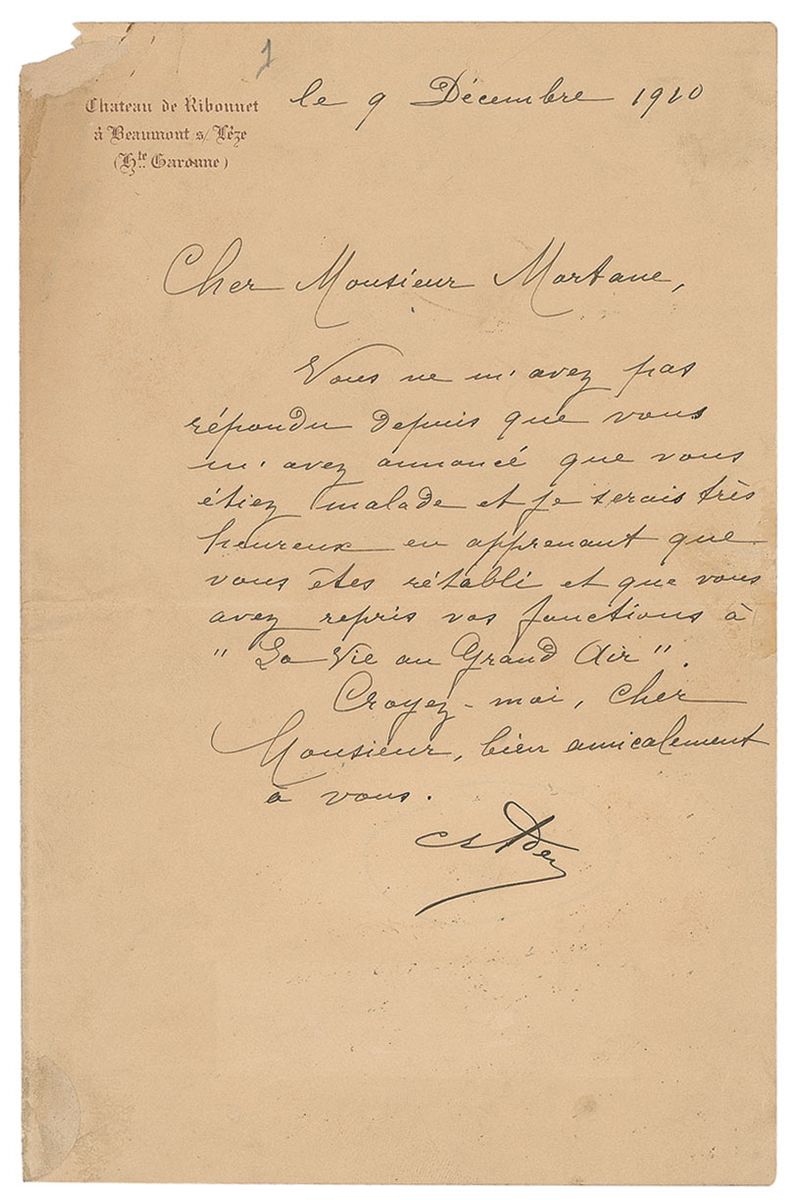 1
Chateau de Ribonnet
à Beaumont s/ Lèze
(Hte Garonne)
le 9 Décembre 1910
Cher Monsieur Mortane,
Vous ne m'avez pas
répondu depuis que vous
m'avez annoncé que vous
étiez malade et je serais très
heureux en apprenant que
vous êtes rétabli et que vous
avez repris vos fonctions à
"La Vie au Grand Air".
Croyez-moi, cher
Monsieur, bien amicalement
à vous.
Cs Ader